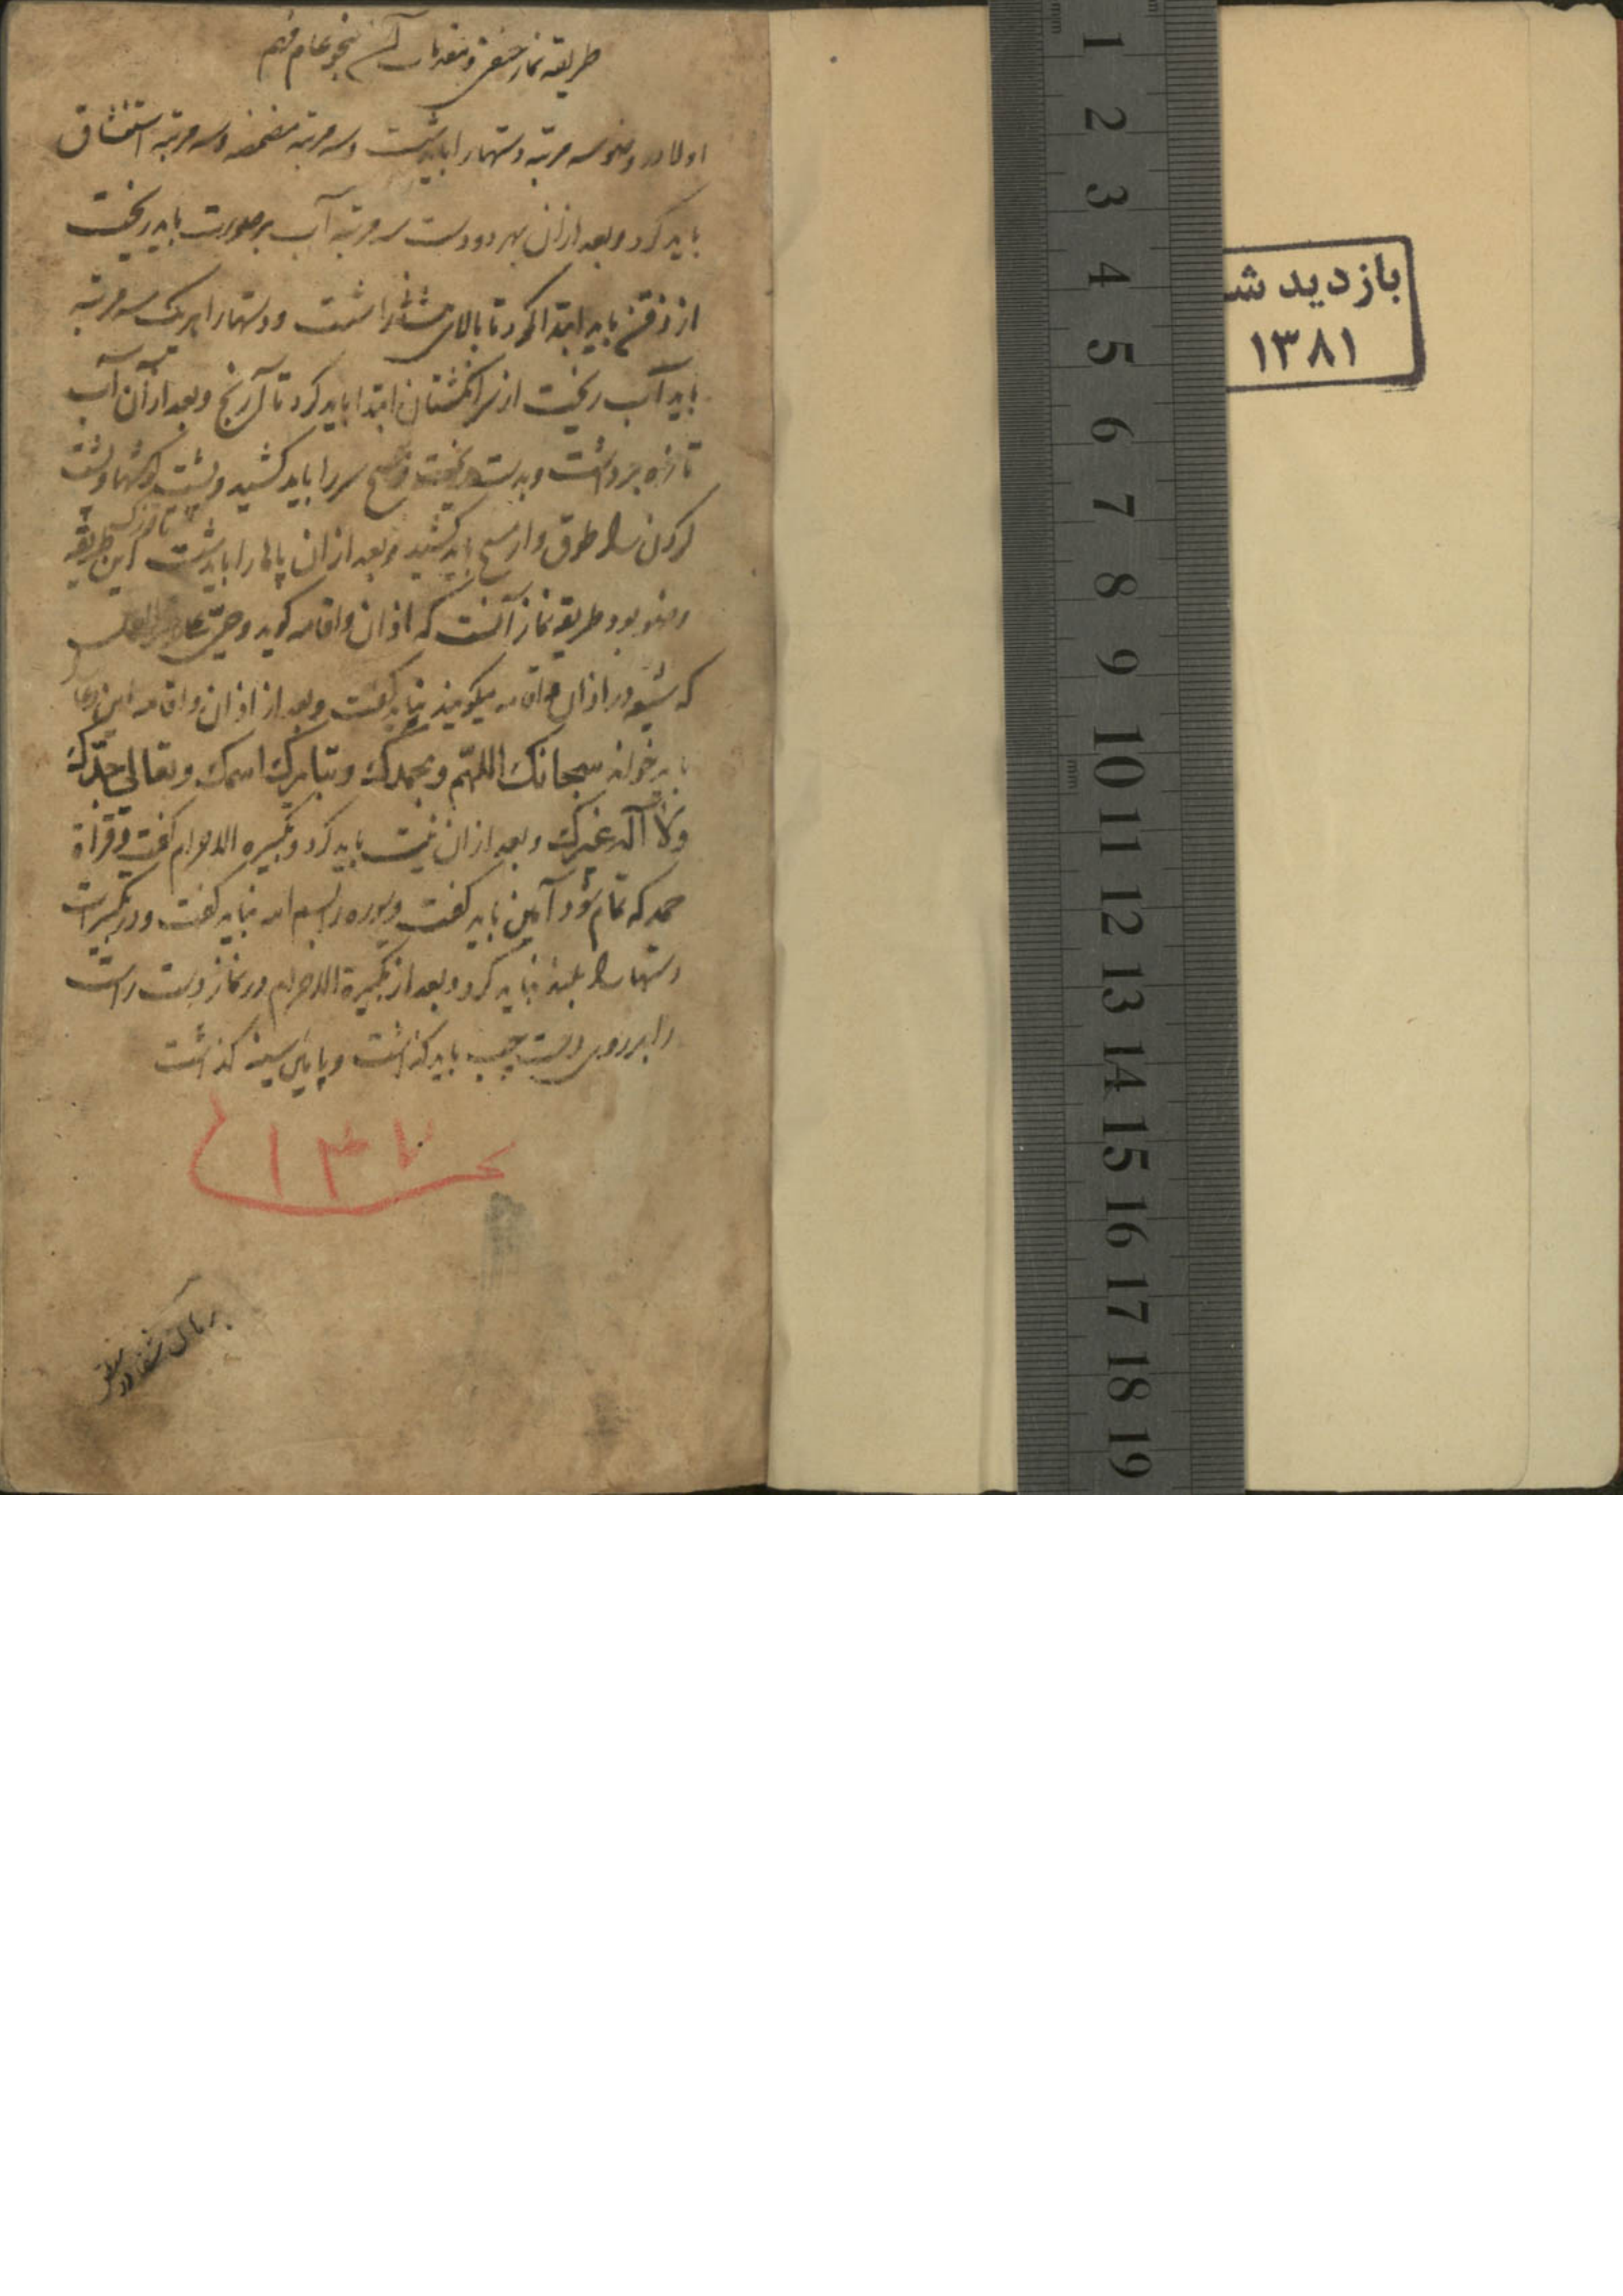 طریقه نماز حنفی و مقدمات آن بنحو عام فهم
اولا در وضو سه مرتبه دستها را باید شست و سه مرتبه مضمضه و سه مرتبه استنشاق
باید کرد و بعد از ان بهر دو دست سه مرتبه آب بر صورت باید ریخت
از ذقن باید ابتدا کرد تا بالای را شست و دستها را هر یک سه مرتبه
باید آب ریخت از سر انگشتان ابتدا باید کرد تا آرنج و بعد از آن آب
تازه برداشت و بدست مسح سر را باید کشید و پشت گوشها و پشت
گردن را طوق وار مسح باید کشید و بعد از ان پاها را باید شست این طریقه
وضو بود طریقه نماز آنست که اذان و اقامه گوید و حی علی خیر العمل
که شیعه در اذان و اقامه میگویند نباید گفت و بعد از اذان و اقامه این دعا
باید خواند سبحانک اللهم وبحمدک وتبارک اسمک وتعالی جدک
ولا اله غیرک و بعد از ان نیت باید کرد و تکبیره الاحرام گفت و قراة
حمد که تمام شود آمین باید گفت و سوره را بسم الله نباید گفت و در تکبیرات
دستها را بلند نباید کرد و بعد از تکبیرة الاحرام در نماز دست راست
را بر روی دست چپ باید گذاشت و پایین سینه گذاشت
بازدید ش
۱۳۸۱
1
2
3
4
5
6
7
8
9
10
11
12
13
14
15
16
17
18
19
mm
mm